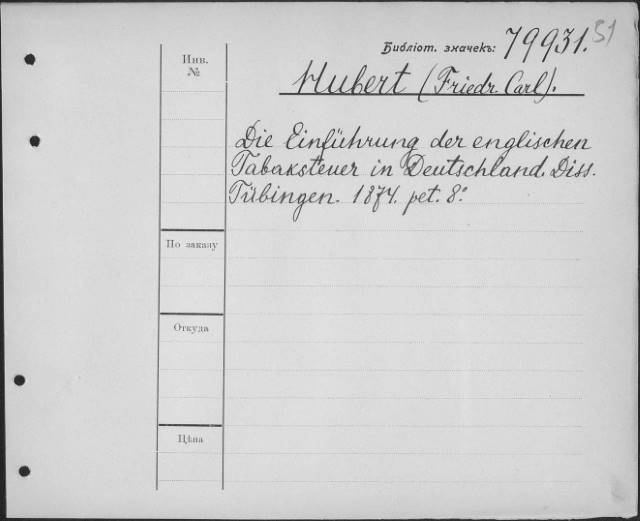 51
Библіот. значекъ: 79931.
Инв.
№
Hubert (Friedr. Carl).
Die Einführung der englischen
Tabaksteuer in Deutschland. Diss.
Tübingen. 1874. pet. 8.º
По заказу
Откуда
Цѣна